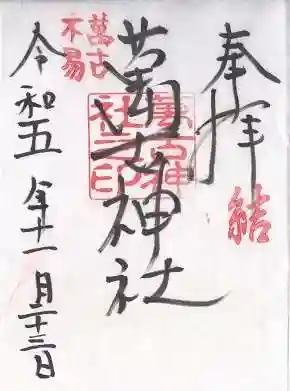 奉拝
結
萬古神社
萬古神
社之印
萬古
不易
令和五年十一月二十三日